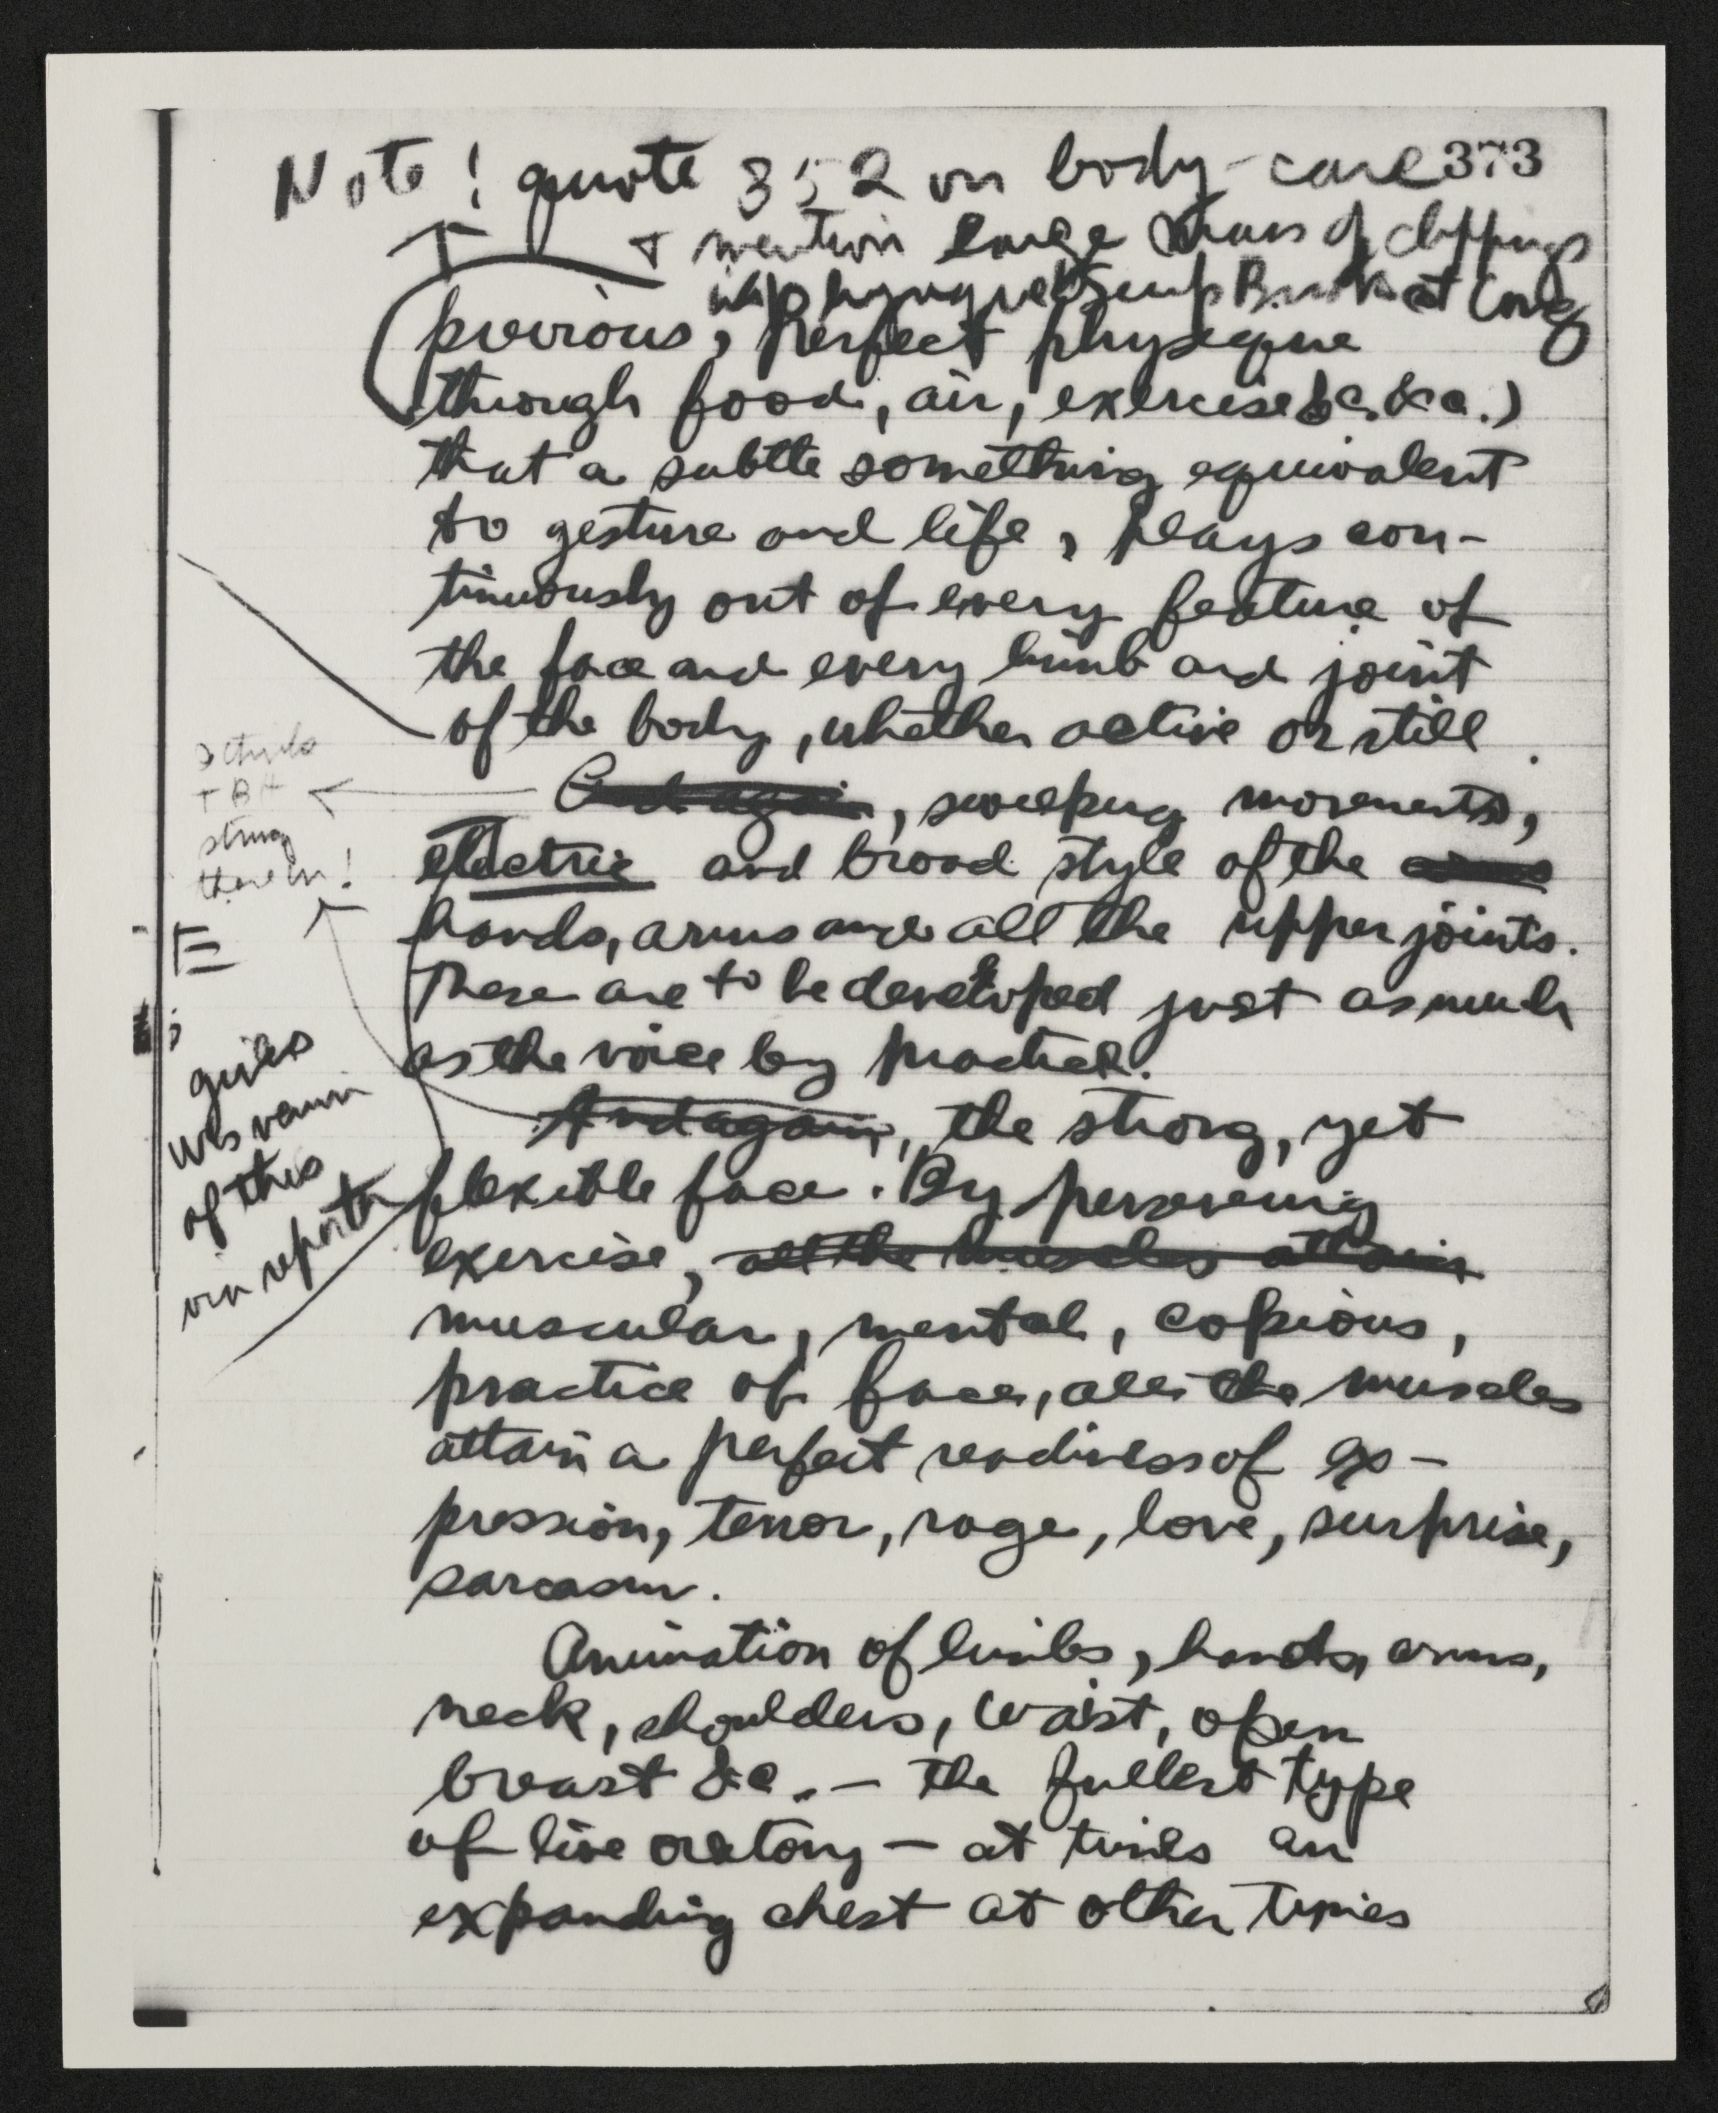 Note! quote 352 on body-care 373
+ mention large mass of clippings
in Scrap Book at Cong
previous, perfect physique
through food, air, exercise &c. &c.)
that a subtle something equivalent
to gesture and life, plays con-
tinuously out of every feature of
the face and every limb and joint
of the body, whether active or still.
And again, sweeping movements,
electric and broad style of the
hands, arms and all the upper joints.
These are to be developed just as much
as the voice by practice.
And again, the strong, yet
flexible face. By persevering
exercise, all the muscles attain
muscular, mental, copious,
practice of face, all the muscles
attain a perfect readiness of ex-
pression, terror, rage, love, surprise,
sarcasm.
Animation of limbs, hands, arms,
neck, shoulders, waist, open
breast &c. – the fullest type
of live oratory – at times an
expanding chest at other times
strong
therein!
III
gives
of this